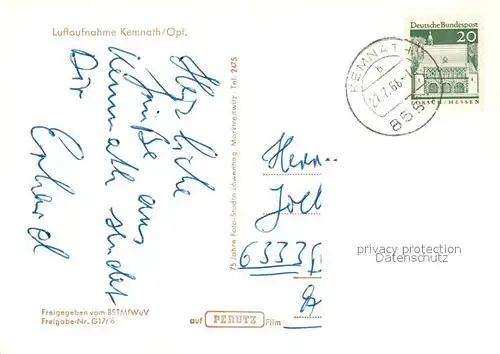 Luftaufnahme Kemnath/Opf.
Herzliche
Grüße aus
Kemnath sendet
Dir
Erhard
Freigegeben vom BSTMfWuV
Freigabe-Nr. G17/6
75 Jahre Foto-Studio Löwenhag, Marktredwitz Tel. 2175
auf PERUTZ Film
Deutsche Bundespost
20
LORSCH/HESSEN
KEMNATH
b
27.7.66
Herrn
6333
privacy protection
Datenschutz